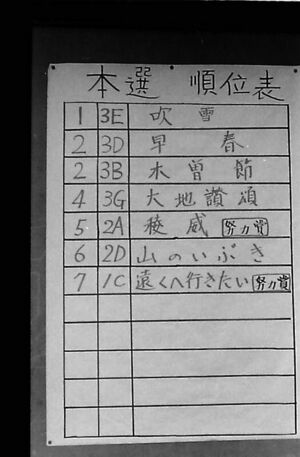 本選 順位表
1 3E 吹雪
2 3D 早春
2 3B 木曽節
4 3G 大地讃頌
5 2A 稜威 努力賞
6 2D 山のいぶき
7 1C 遠くへ行きたい 努力賞